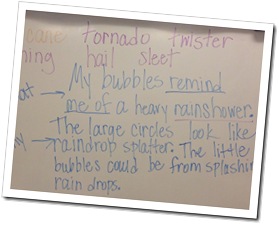 tornado twister
hail sleet
My bubbles remind
me of a heavy rainshower.
The large circles look like
raindrop splatter. The little
bubbles could be from
rain drops.